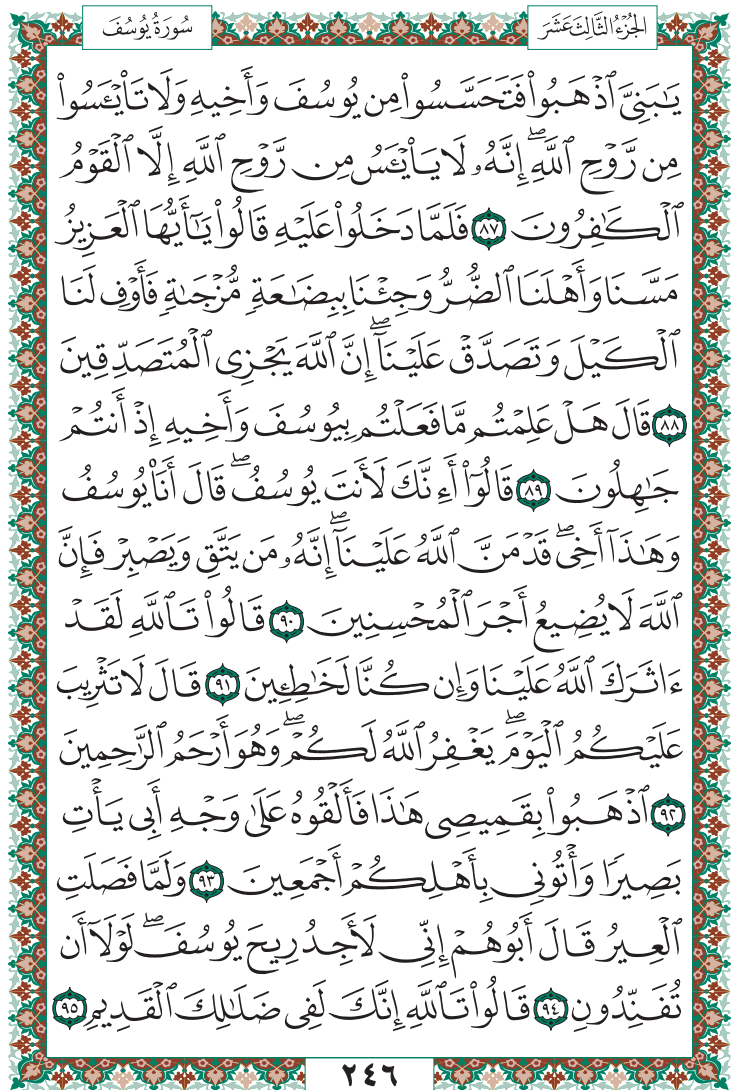 الجُزْءُ الثَّالِثَ عَشَرَ
سُورَةُ يُوسُفَ
يَـٰبَنِىَّ ٱذۡهَبُواْ فَتَحَسَّسُواْ مِن يُوسُفَ وَأَخِيهِ وَلَا تَاْيۡـَٔسُواْ
مِن رَّوۡحِ ٱللَّهِۖ إِنَّهُۥ لَا يَاْيۡـَٔسُ مِن رَّوۡحِ ٱللَّهِ إِلَّا ٱلۡقَوۡمُ
ٱلۡكَـٰفِرُونَ ٨٧ فَلَمَّا دَخَلُواْ عَلَيۡهِ قَالُواْ يَـٰٓأَيُّهَا ٱلۡعَزِيزُ
مَسَّنَا وَأَهۡلَنَا ٱلضُّرُّ وَجِئۡنَا بِبِضَـٰعَةٖ مُّزۡجَىٰةٖ فَأَوۡفِ لَنَا
ٱلۡكَيۡلَ وَتَصَدَّقۡ عَلَيۡنَآۖ إِنَّ ٱللَّهَ يَجۡزِى ٱلۡمُتَصَدِّقِينَ
٨٨ قَالَ هَلۡ عَلِمۡتُم مَّا فَعَلۡتُم بِيُوسُفَ وَأَخِيهِ إِذۡ أَنتُمۡ
جَـٰهِلُونَ ٨٩ قَالُوٓاْ أَءِنَّكَ لَأَنتَ يُوسُفُۖ قَالَ أَنَا۠ يُوسُفُ
وَهَـٰذَآ أَخِىۖ قَدۡ مَنَّ ٱللَّهُ عَلَيۡنَآۖ إِنَّهُۥ مَن يَتَّقِ وَيَصۡبِرۡ فَإِنَّ
ٱللَّهَ لَا يُضِيعُ أَجۡرَ ٱلۡمُحۡسِنِينَ ٩٠ قَالُواْ تَٱللَّهِ لَقَدۡ
ءَاثَرَكَ ٱللَّهُ عَلَيۡنَا وَإِن كُنَّا لَخَـٰطِـِٔينَ ٩١ قَالَ لَا تَثۡرِيبَ
عَلَيۡكُمُ ٱلۡيَوۡمَۖ يَغۡفِرُ ٱللَّهُ لَكُمۡۖ وَهُوَ أَرۡحَمُ ٱلرَّٰحِمِينَ
٩٢ ٱذۡهَبُواْ بِقَمِيصِى هَـٰذَا فَأَلۡقُوهُ عَلَىٰ وَجۡهِ أَبِى يَأۡتِ
بَصِيرٗا وَأۡتُونِى بِأَهۡلِكُمۡ أَجۡمَعِينَ ٩٣ وَلَمَّا فَصَلَتِ
ٱلۡعِيرُ قَالَ أَبُوهُمۡ إِنِّى لَأَجِدُ رِيحَ يُوسُفَۖ لَوۡلَآ أَن
تُفَنِّدُونِ ٩٤ قَالُواْ تَٱللَّهِ إِنَّكَ لَفِى ضَلَـٰلِكَ ٱلۡقَدِيمِ ٩٥
٢٤٦